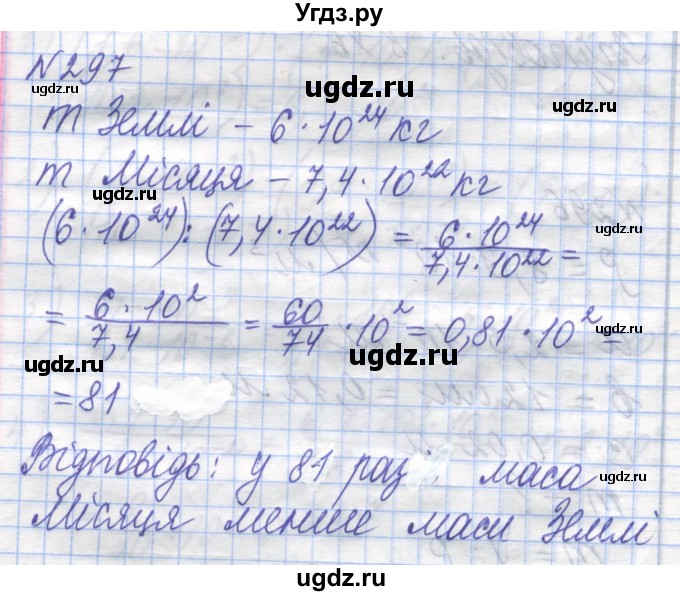 Угдз.ру
№297
ugdz.ru ugdz.ru ugdz.ru
m Землі – 6 · 10²⁴ кг
m Місяця – 7,4 · 10²² кг
ugdz.ru ugdz.ru
(6 · 10²⁴) : (7,4 · 10²²) = 6 · 10²⁴ / 7,4 · 10²² =
ugdz.ru
= 6 · 10² / 7,4 = 60 / 74 · 10² = 0,81 · 10² =
ugdz.ru ugdz.ru ugdz.ru
= 81
Відповідь: у 81 раз маса
ugdz.ru ugdz.ru ugdz.ru
Місяця менше маси Землі
ugdz.ru